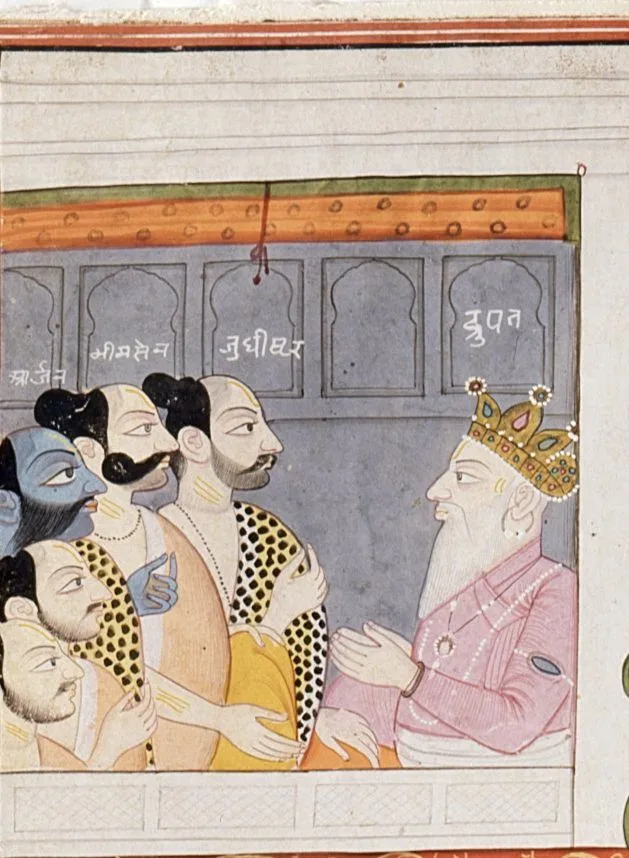 आर्जन
भीमसेन
जुधीष्टर
द्रुपत